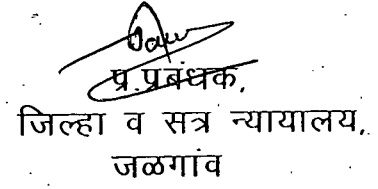 प्र.प्रबंधक,
जिल्हा व सत्र न्यायालय,
जळगांव